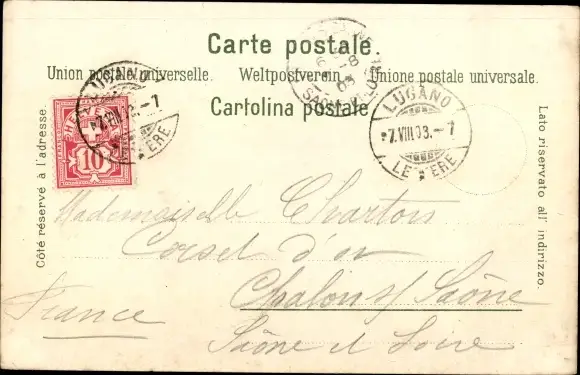 Carte postale.
Union postale universelle. Weltpostverein. Unione postale universale.
Cartolina postale.
Côté réservé à l'adresse.
Lato riservato all' indirizzo.
LUGANO
7.VIII.03.-7
LETTERE
LUGANO
7.VIII.03.-7
LETTERE
10
Mademoiselle Chartois
Corset d'or
Chalon s/ Saône
Saône et Loire
France